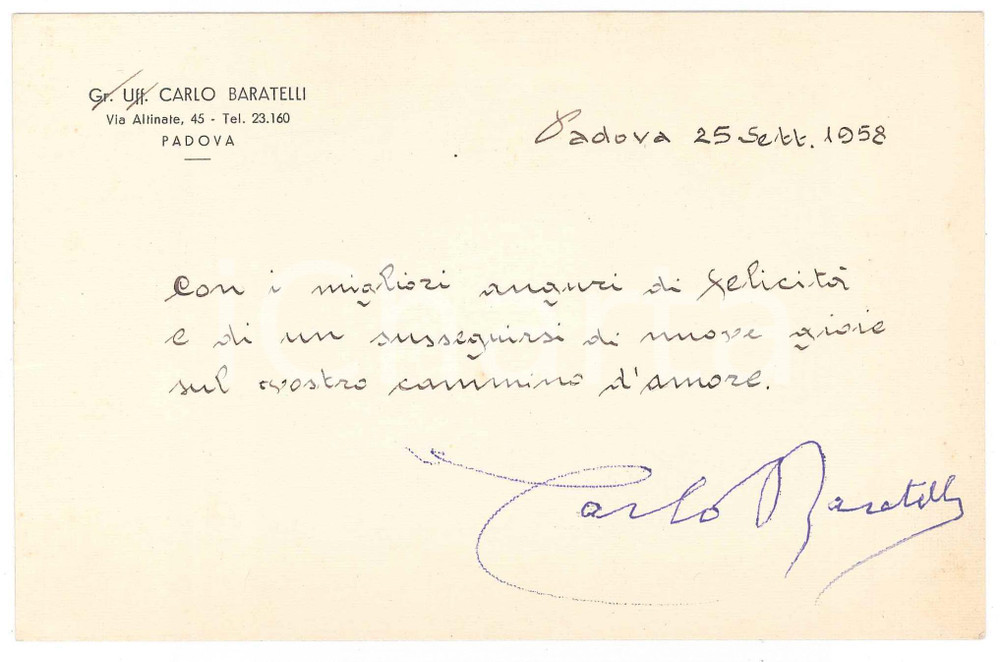 Gr. Uff. CARLO BARATELLI
Via Altinate, 45 - Tel. 23.160
PADOVA
Padova 25 Sett. 1958
Con i migliori auguri di felicità
e di un susseguirsi di nuove gioie
sul vostro cammino d'amore.
Carlo Baratelli